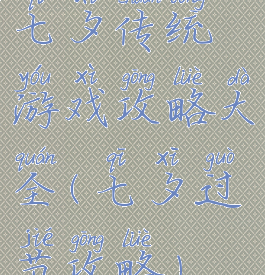 七夕传统
yóu xì gōng lüè dà
游戏攻略大
quán qī xī guò
全(七夕过
jié gōng lüè
节攻略)